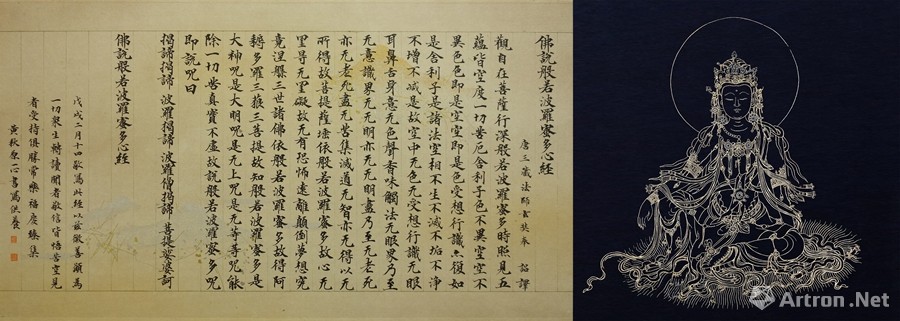 佛說般若波羅蜜多心經
唐三藏法師玄奘奉 詔譯
觀自在菩薩行深般若波羅蜜多時照見五
蘊皆空度一切苦厄舍利子色不異空空不
異色色即是空空即是色受想行識亦復如
是舍利子是諸法空相不生不滅不垢不淨
不增不減是故空中无色无受想行識无眼
耳鼻舌身意无色聲香味觸法无眼界乃至
无意識界无无明亦无无明盡乃至无老死
亦无老死盡无苦集滅道无智亦无得以无
所得故菩提薩埵依般若波羅蜜多故心无
罣㝵无罣礙故无有恐怖遠離顛倒夢想究
竟涅槃三世諸佛依般若波羅蜜多故得阿
耨多羅三藐三菩提故知般若波羅蜜多是
大神呪是大明呪是无上呪是无等等呪能
除一切苦真實不虛故說般若波羅蜜多呪
即說呪曰
揭諦揭諦 波羅揭諦 波羅僧揭諦 菩提娑婆訶
佛說般若波羅蜜多心經
戊戌二月十四敬寫此經以茲微善願為
一切眾生轉讀聞者敬信皆悟苦空見
者受持俱勝常樂福慶臻集
黃秋原一心書寫供養
Artron.Net